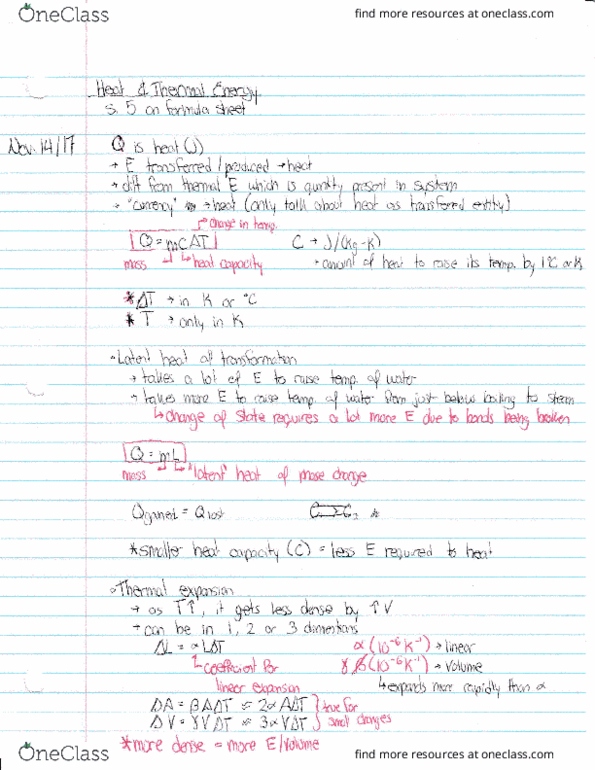 OneClass
find more resources at oneclass.com
Heat & Thermal Energy
s. 5 on formula sheet
Nov. 14/17
Q is heat (J)
→ E transferred / produced → heat
→ diff from thermal E which is quantity present in system
→ "currency" → heat (only talk about heat as transferred entity)
→ change in temp.
Q = mCΔT
C → J/(kg-K)
mass
↳ heat capacity
→ amount of heat to raise its temp. by 1°C or K
* ΔT → in K or °C
* T → only in K
◦ Latent heat of transformation
→ takes a lot of E to raise temp. of water
→ takes more E to raise temp. of water from just below boiling to steam
↳ change of state requires a lot more E due to bonds being broken
Q = mL
mass
↳ "latent" heat of phase change
Qgained = Qlost
* smaller heat capacity (C) = less E required to heat
◦ Thermal expansion
→ as T↑, it gets less dense by ↑V
→ can be in 1, 2 or 3 dimentions
ΔL = αLΔT
α (10⁻⁶ K⁻¹) → linear
↳ coefficient for
linear expansion
γ (10⁻⁶ K⁻¹) → volume
↳ expands more rapidly than α
ΔA = βAΔT ≈ 2αAΔT
ΔV = γVΔT ≈ 3αVΔT
true for
small changes
* more dense = more E/volume
OneClass
find more resources at oneclass.com